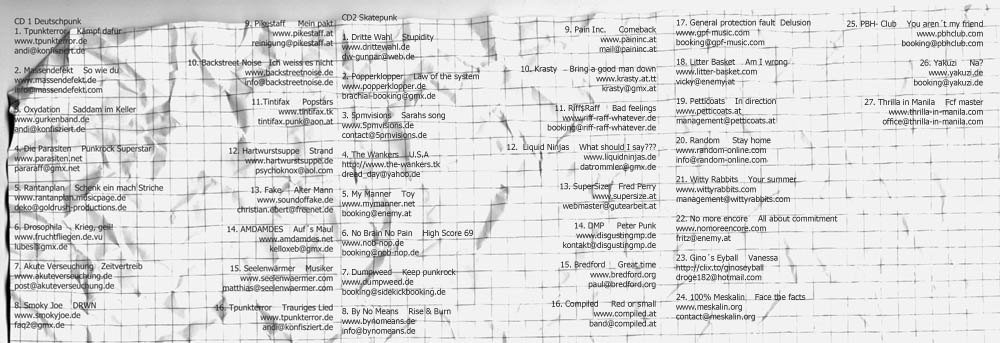 CD 1 Deutschpunk
1. Tpunkterror Kampf dafür
www.tpunkterror.de
andi@konfisziert.de
2. Massendefekt So wie du
www.massendefekt.de
info@massendefekt.com
3. Oxydation Saddam im Keller
www.gurkenband.de
andi@konfisziert.de
4. Die Parasiten Punkrock Superstar
www.parasiten.net
pararaff@gmx.net
5. Rantanplan Schenk ein mach Striche
www.rantanplan.musicpage.de
deko@goldrush-productions.de
6. Drosophila Krieg, geil!
www.fruchtfliegen.de.vu
lubes@gmx.de
7. Akute Verseuchung Zeitvertreib
www.akuteverseuchung.de
post@akuteverseuchung.de
8. Smoky Joe DRWN
www.smokyjoe.de
faq2@gmx.de
9. Pikestaff Mein pakt
www.pikestaff.at
reinigung@pikestaff.at
10. Backstreet Noise Ich weiss es nicht
www.backstreetnoise.de
info@backstreetnoise.de
11.Tintifax Popstars
www.tintifax.tk
tintifax.punk@aon.at
12. Hartwurstsuppe Strand
www.hartwurstsuppe.de
psychoknox@aol.com
13. Fake Alter Mann
www.soundoffake.de
christian.ebert@freenet.de
14. AMDAMDES Auf´s Maul
www.amdamdes.net
kelloxeb@gmx.de
15. Seelenwärmer Musiker
www.seelenwaermer.com
matthias@seelenwaermer.com
16. Tpunkterror Trauriges Lied
www.tpunkterror.de
andi@konfisziert.de
CD2 Skatepunk
1. Dritte Wahl Stupidity
www.drittewahl.de
dw-gunpar@web.de
2. Popperklopper Law of the system
www.popperklopper.de
brachial-booking@gmx.de
3. 5pmvisions Sarahs song
www.5pmvisions.de
contact@5pmvisions.de
4. The Wankers U.S.A
http://www.the-wankers.tk
dread_day@yahoo.de
5. My Manner Toy
www.mymanner.net
booking@enemy.at
6. No Brain No Pain High Score 69
www.nob-nop.de
booking@nob-nop.de
7. Dumpweed Keep punkrock
www.dumpweed.de
booking@sidekickbooking.de
8. By No Means Rise & Burn
www.bynomeans.de
info@bynomeans.de
9. Pain Inc. Comeback
www.paininc.at
mail@paininc.at
10. Krasty Bring a good man down
www.krasty.at.tt
krasty@gmx.at
11. Riff$Raff Bad feelings
www.riff-raff-whatever.de
booking@riff-raff-whatever.de
12. Liquid Ninjas What should I say???
www.liquidninjas.de
datrommler@gmx.de
13. SuperSize Fred Perry
www.supersize.at
webmaster@gutearbeit.at
14. DMP Peter Punk
www.disgustingmp.de
kontakt@disgustingmp.de
15. Bredford Great time
www.bredford.org
paul@bredford.org
16. Compiled Red or small
www.compiled.at
band@compiled.at
17. General protection fault Delusion
www.gpf-music.com
booking@gpf-music.com
18. Litter Basket Am I wrong
www.litter-basket.com
vicky@enemy.at
19. Petticoats In direction
www.petticoats.at
management@petticoats.at
20. Random Stay home
www.random-online.com
info@random-online.com
21. Witty Rabbits Your summer
www.wittyrabbits.com
management@wittyrabbits.com
22. No more encore All about commitment
www.nomoreencore.com
fritz@enemy.at
23. Gino´s Eyball Vanessa
http://clix.to/ginoseyball
droge182@hotmail.com
24. 100% Meskalin Face the facts
www.meskalin.org
contact@meskalin.org
25. PBH- Club You aren´t my friend
www.pbhclub.com
booking@pbhclub.com
26. Yakuzi Na?
www.yakuzi.de
booking@yakuzi.de
27. Thrilla in Manila Fcf master
www.thrilla-in-manila.com
office@thrilla-in-manila.com